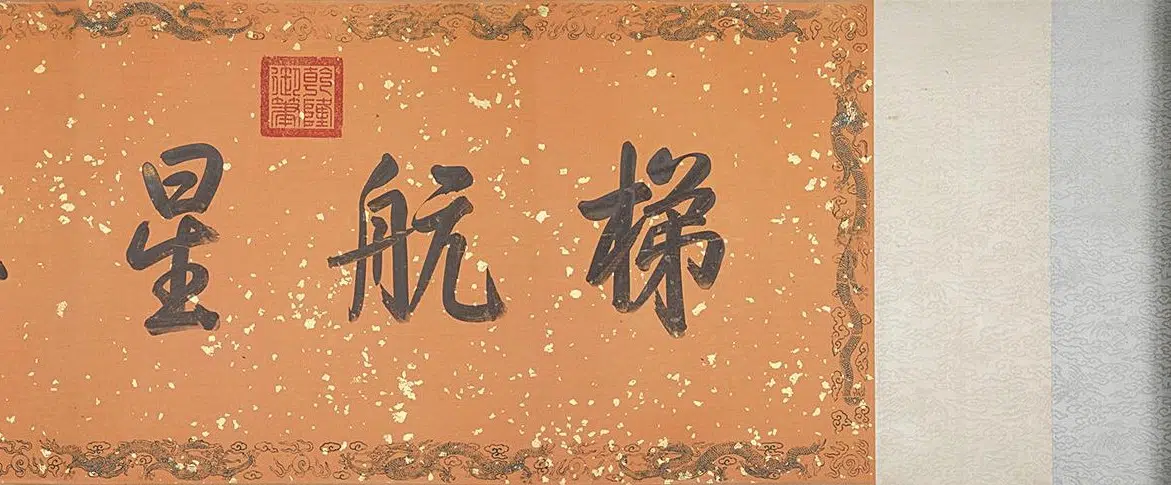 梯航星
乾隆御筆